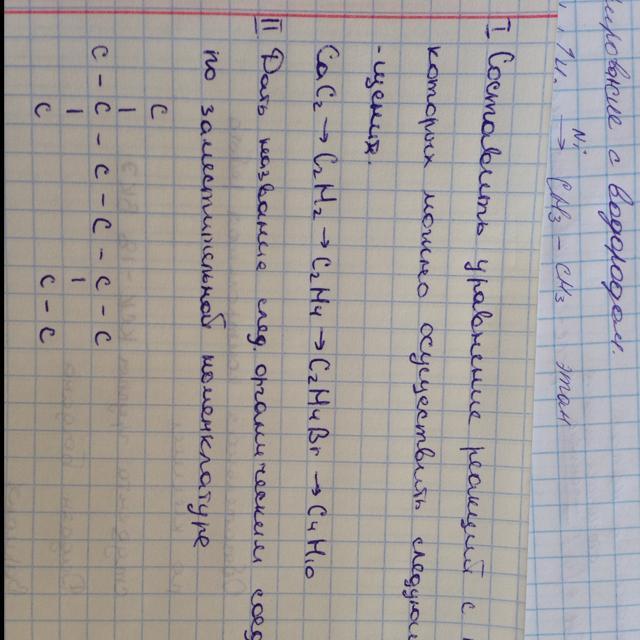 с водородом.
Ni
→ CH3 - CH3 этан
I Составить уравнение реакций с
которых можно осуществить следующ
-щения.
CaC2 → C2H2 → C2H4 → C2H4Br → C4H10
II Дать название след. органическим соед
по заместительной номенклатуре
C
|
C - C - C - C - C - C
| |
C C - C